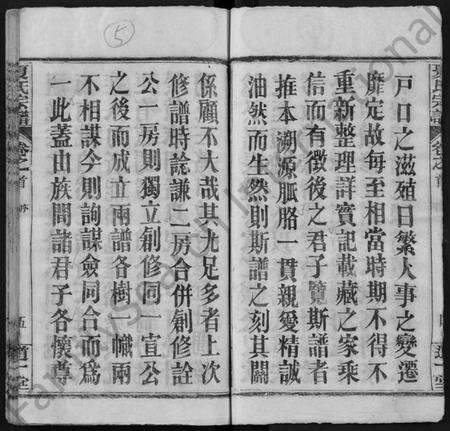 戶口之滋殖日繁人事之變遷
靡定故每至相當時期不得不
重新整理詳實記載藏之家乘
信而有徵後之君子覽斯譜者
推本溯源脈胳一貫親愛精誠
油然而生然則斯譜之刻其關
係顧不大哉其尤足多者上次
修譜時詮謙二房合併創修詮
公一房則獨立創修同一宣公
之後而成立兩譜各樹一幟兩
不相謀今則詢謀僉同合而為
一此蓋由族間諸君子各懷尊
氏宗譜
卷之首
五
道一堂
⑤
FamilySearch International